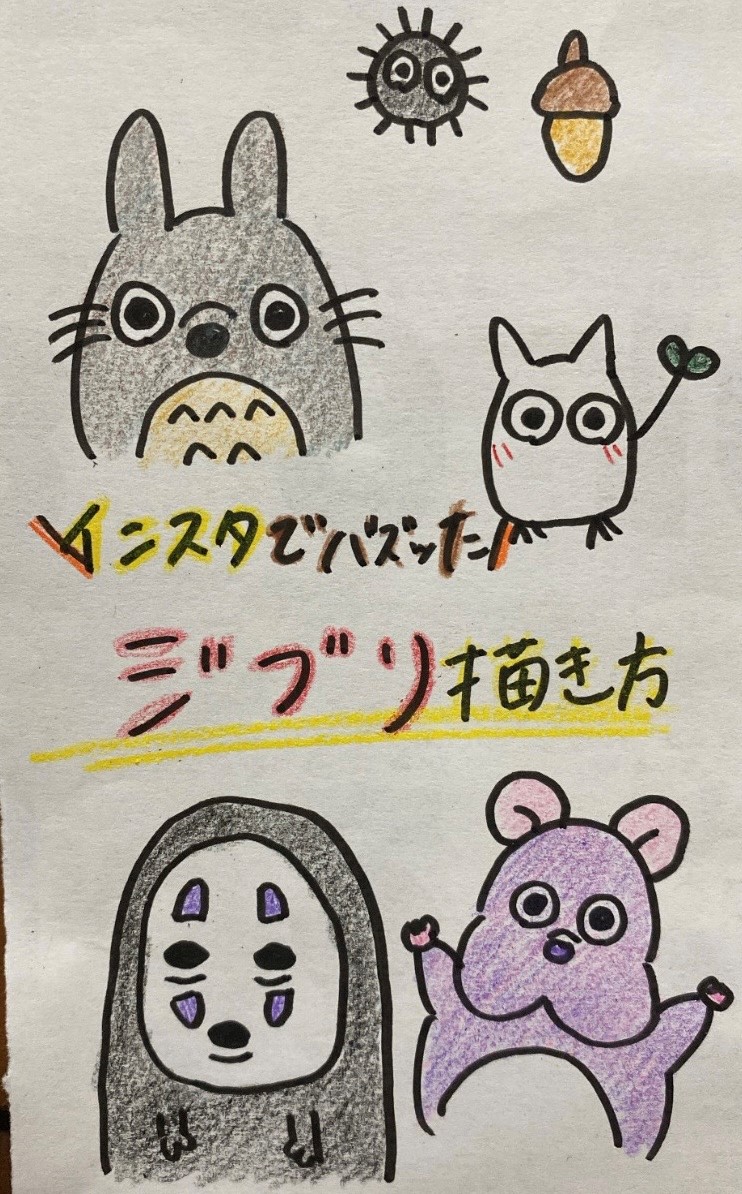 インスタでバズッた
ジブリ描き方